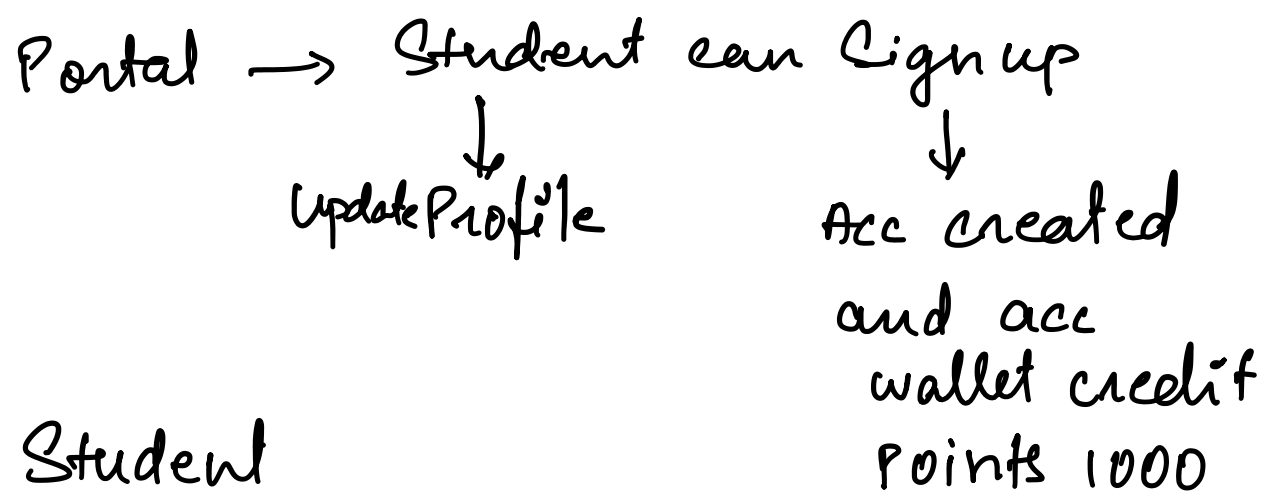 Portal → Student can Sign up
Update Profile
Acc created
and acc
wallet credit
Points 1000
Student